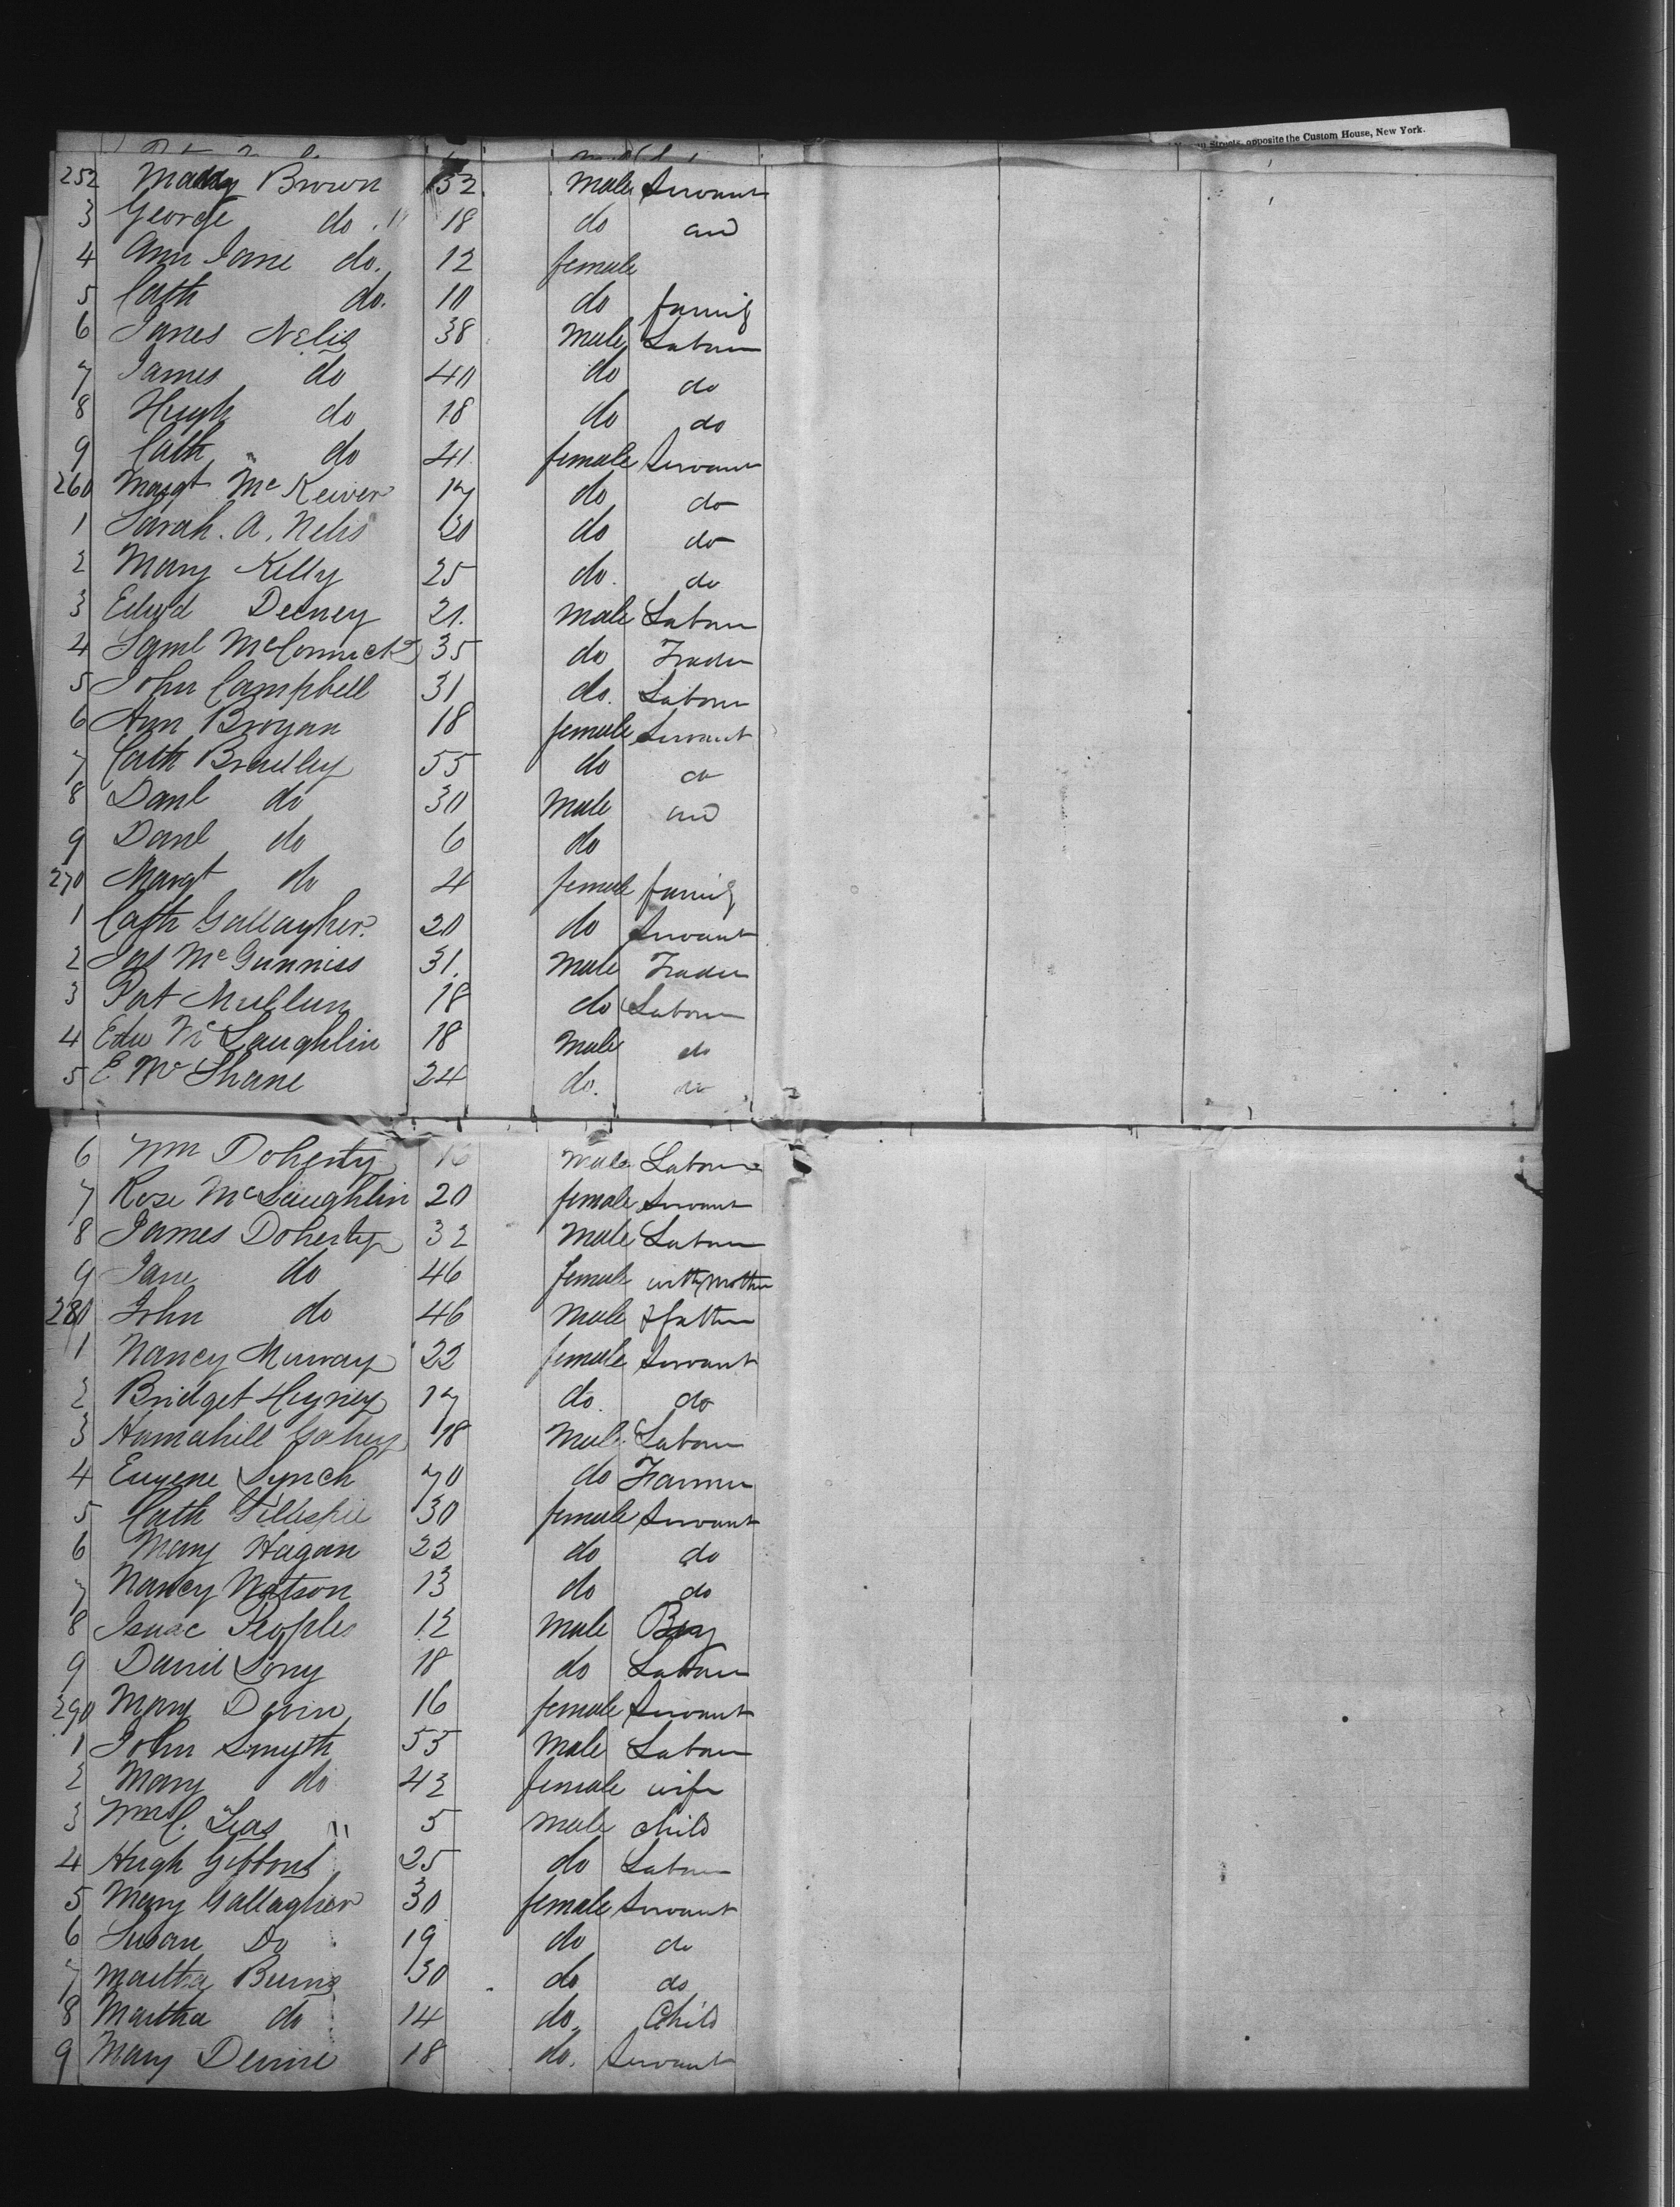 Streets, opposite the Custom House, New York.
252 Brown 32 male Servant
3 George do 18 do and
4 Ann Jane do. 12 female
5 Cath do. 10 do family
6 James Nelis 38 Male Labour
7 James do 40 do do
8 Hugh do 18 do do
9 Cath do 41 female Servant
260 Margt McKeiver 17 do do
1 Sarah. A. Nelis 20 do do
2 Mary Kelly 25 do. do
3 Edwd Deeney 21. male Labour
4 Saml McCormick 35 do Trader
5 John Campbell 31 do. Labour
6 Ann Brogan 18 female Servant
7 Cath Bradley 55 do do
8 Danl do 30 Male and
9 Danl do 6 do
270 Margt do 4 female family
1 Cath Gallagher. 20 do Servant
2 Jas McGunniss 31. Male Trader
3 Pat Mullun 18 do Labour
4 Edw McLaughlin 18 Male do
5 E. McShane 24 do. do
6 Wm Doherty 16 male Labour
7 Rose McLaughlin 20 female Servant
8 James Doherty 32 Male Labour
9 Jane do 46 female with mother
280 John do 46 Male & father
1 Nancy Murray 22 female Servant
2 Bridget 17 do. do
3 18 Male Labour
4 Eugene Lynch 70 do Farmer
5 Cath Gillespie 30 female Servant
6 Mary Hagan 22 do do
7 Nancy Watson 13 do do
8 Isaac Peoples 12 male Boy
9 David Long 18 do Labour
290 Mary Devin 16 female Servant
1 John Smyth 55 Male Labour
2 Mary do 42 female wife
3 Wm C. 5 male child
4 Hugh Gibbons 25 do Labour
5 Mary Gallagher 30 female Servant
6 Susan Do 19 do do
7 Martha Burns 30 do do
8 Martha do 14 do. Child
9 Mary Devine 18 do. Servant